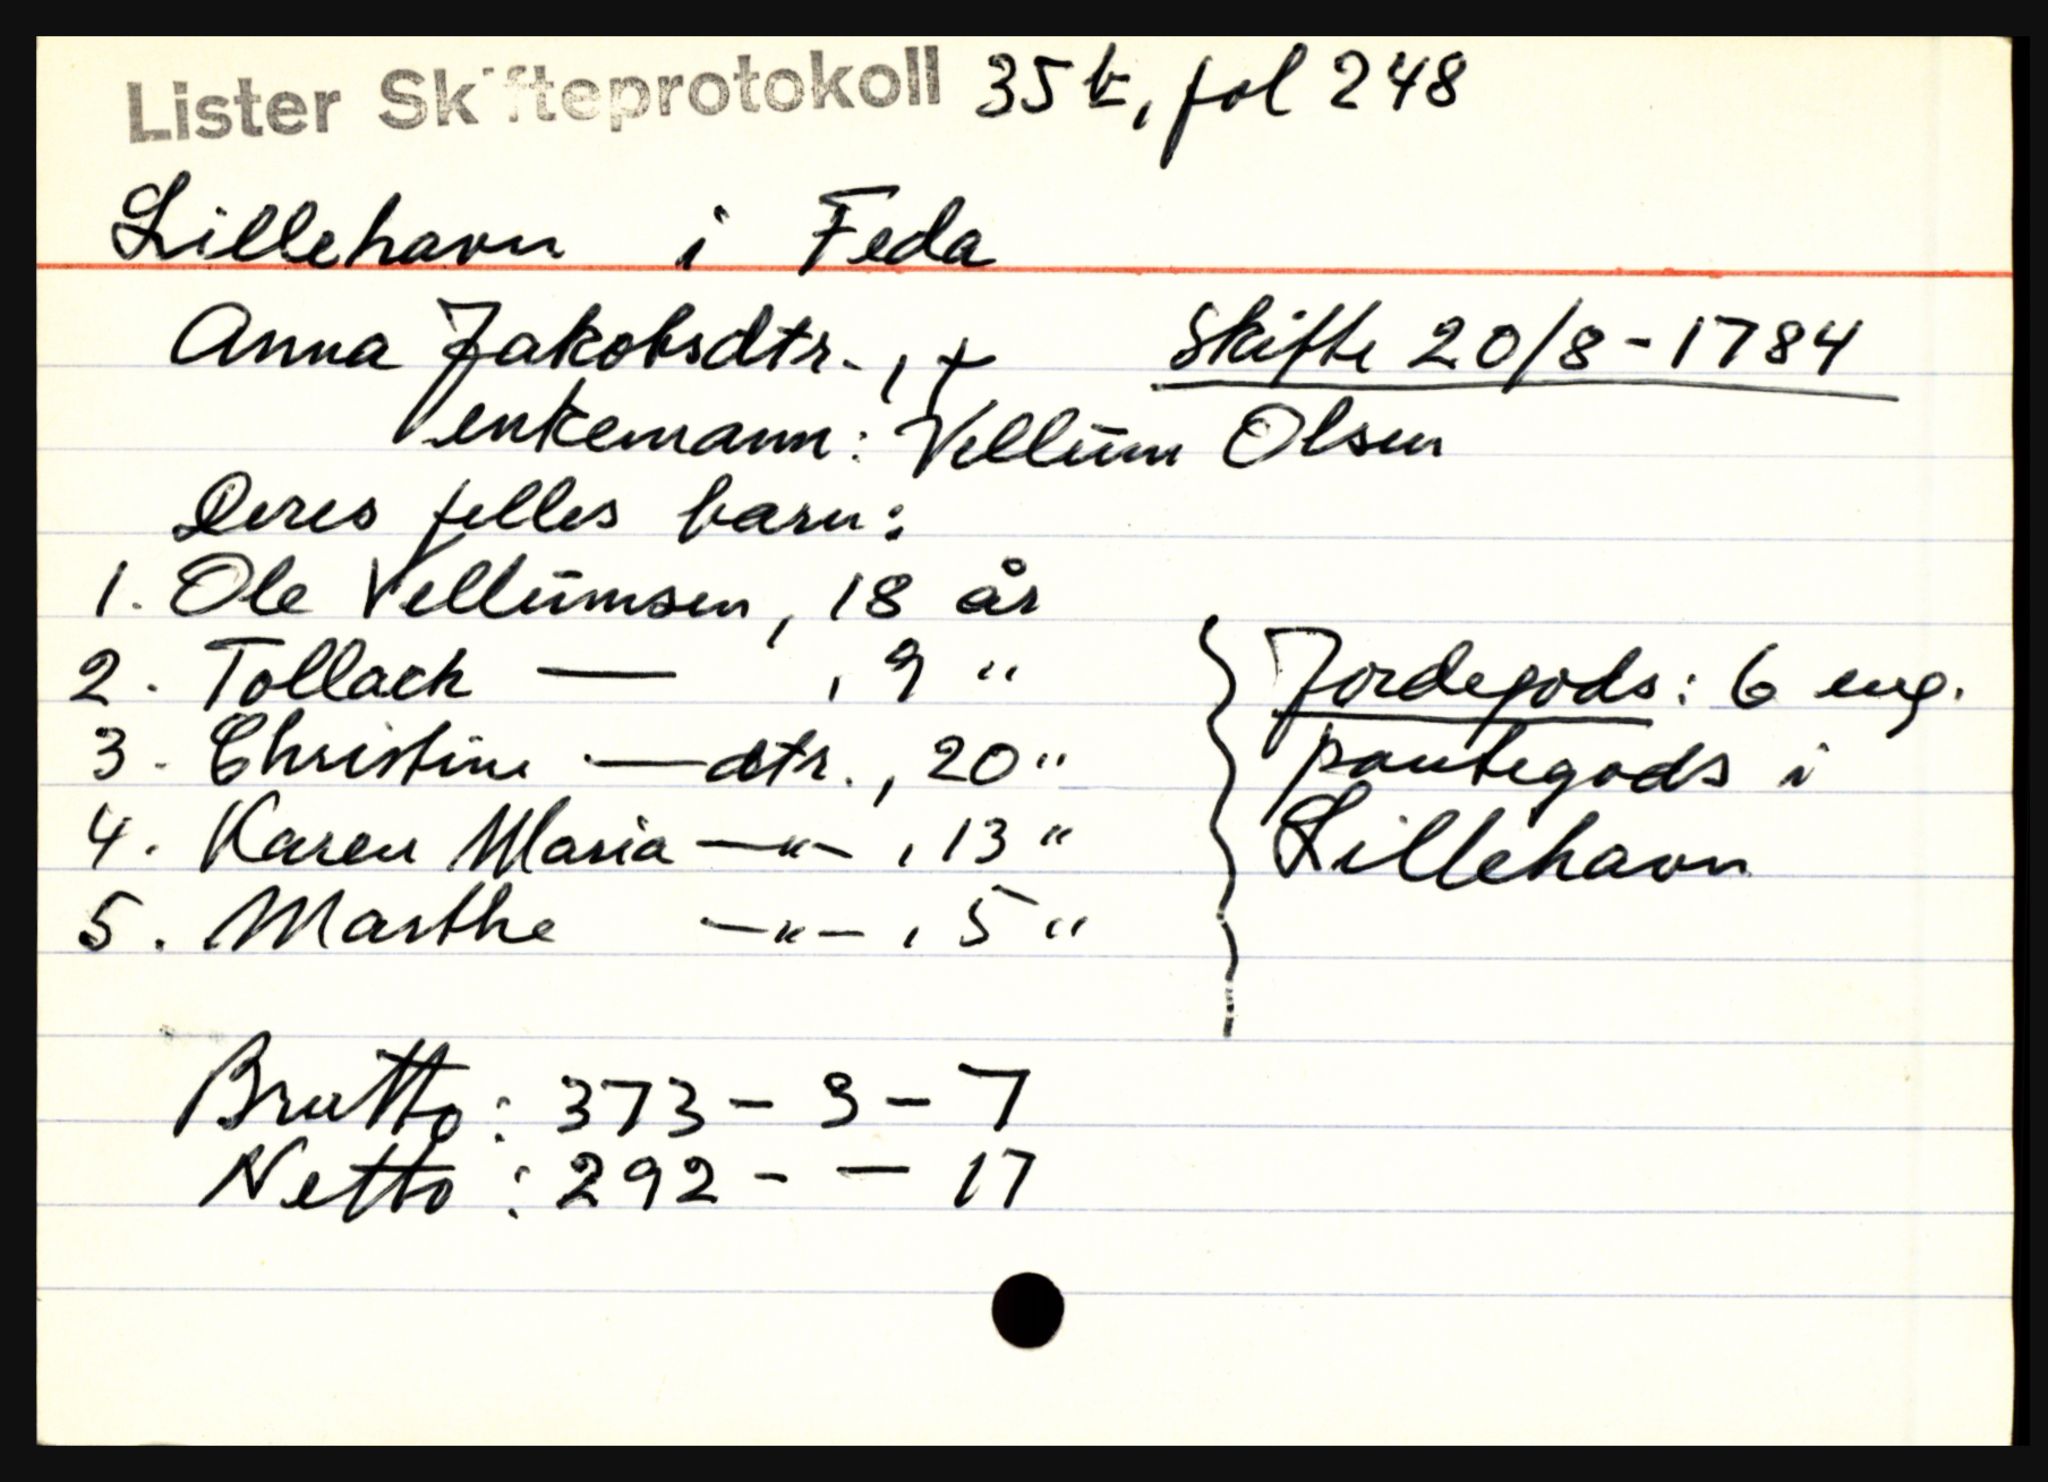 Lister Skifteprotokoll 35b, fol 248
Lillehavn i Feda
Anna Jakobsdtr., † Skifte 20/8-1784
enkemann: Vellūm Olsen
Deres felles barn:
1. Ole Vellūmsen, 18 år
2. Tollack — , 9 "
3. Christine — dtr., 20 "
4. Karen Maria —"— , 13 "
5. Marthe —"— , 5 "
Jordegods: 6 eng.
pantegods i
Lillehavn
Brutto: 373 - 3 - 7
Netto: 292 - — 17